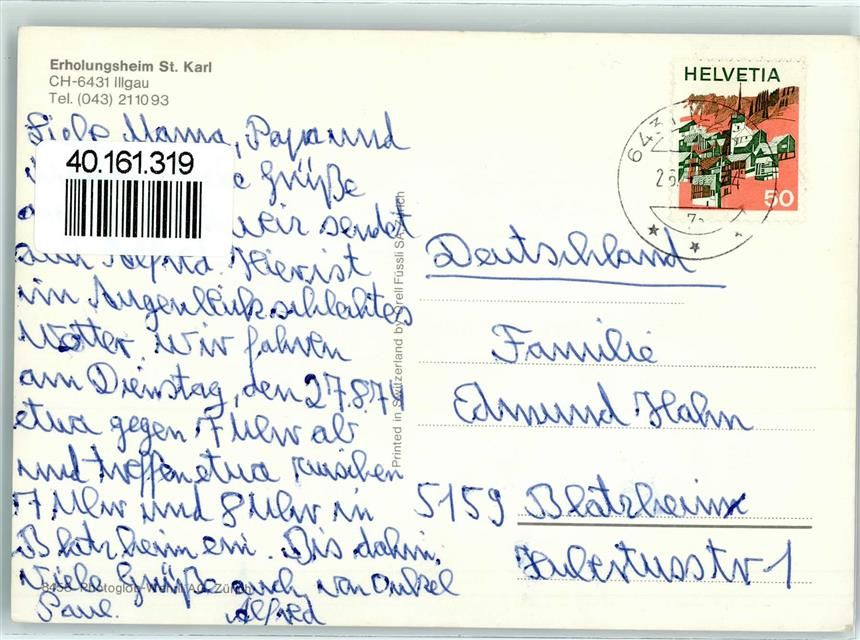 Erholungsheim St. Karl
CH-6431 Illgau
Tel. (043) 211093
Liebe Mama, Papa und
40.161.319
Grüße
wir sendet
Alfred. Hier ist
im Augenblick schlechtes
Wetter. Wir fahren
am Dienstag, den 27.8.74
etwa gegen 7 Uhr ab
und treffen etwa zwischen
7 Uhr und 8 Uhr in
Blatzheim ein. Bis dahin,
Viele Grüße auch von Onkel
Paul. Alfred
8458 Photoglob-Wehrli AG, Zürich
Printed in Switzerland by Orell Füssli SA Zürich
HELVETIA
50
643
Deutschland
Familie
Edmund Hahn
5159 Blatzheim
Hubertusstr 1